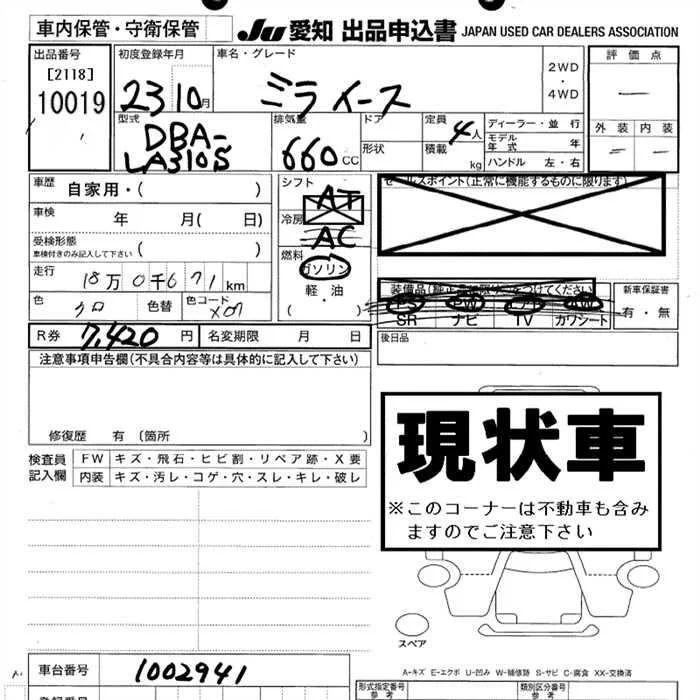 車内保管・守衛保管
JU 愛知 出品申込書 JAPAN USED CAR DEALERS ASSOCIATION
出品番号
[2118]
10019
初度登録年月
23 10月
車名・グレード
ミライース
2WD
・
4WD
評価点
—
外装 内装
型式
DBA-
LA310S
排気量
660 CC
ドア
形状
定員
4人
積載 kg
ディーラー・並行
モデル年式 年
ハンドル 左・右
車歴 自家用・( )
車検 年 月( 日)
受検形態
車検付きのみ記入して下さい ( )
走行 18万 0千6 71 km
色 クロ 色替 色コード X07
シフト AT
冷房 AC
燃料 ガソリン
軽・油
( )
セールスポイント(正常に機能するものに限ります)
SR ナビ TV カワシート
新車保証書
有・無
R券 7,420 円 名変期限 月 日
後日品
注意事項申告欄(不具合内容等は具体的に記入して下さい)
修復歴 有 〔箇所 〕
検査員
記入欄
FW キズ・飛石・ヒビ割・リペア跡・X要
内装 キズ・汚レ・コゲ・穴・スレ・キレ・破レ
現状車
※このコーナーは不動車も含み
ますのでご注意下さい
スペア
A-キズ E-エクボ U-凹み W-補修跡 S-サビ C-腐食 XX-交換済
車台番号 1002941
形式指定番号
参考
類別区分番号
参考